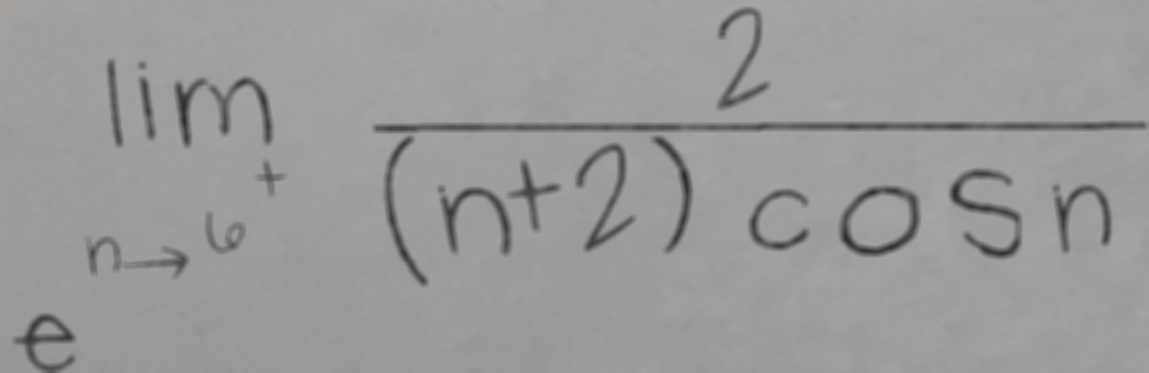 e^{\lim_{n \to 6^+} \frac{2}{(n+2) \cos n}}